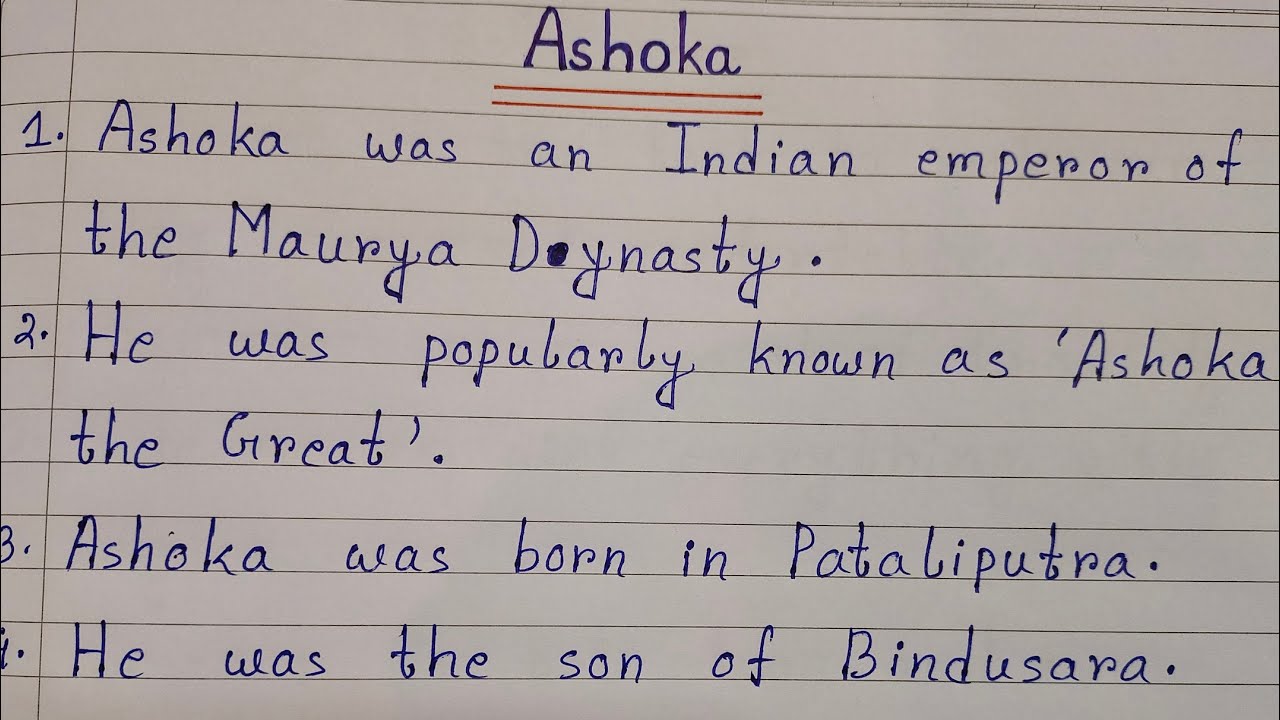 Ashoka
1. Ashoka was an Indian emperor of
the Maurya Dynasty.
2. He was popularly known as 'Ashoka
the Great'.
3. Ashoka was born in Pataliputra.
4. He was the son of Bindusara.